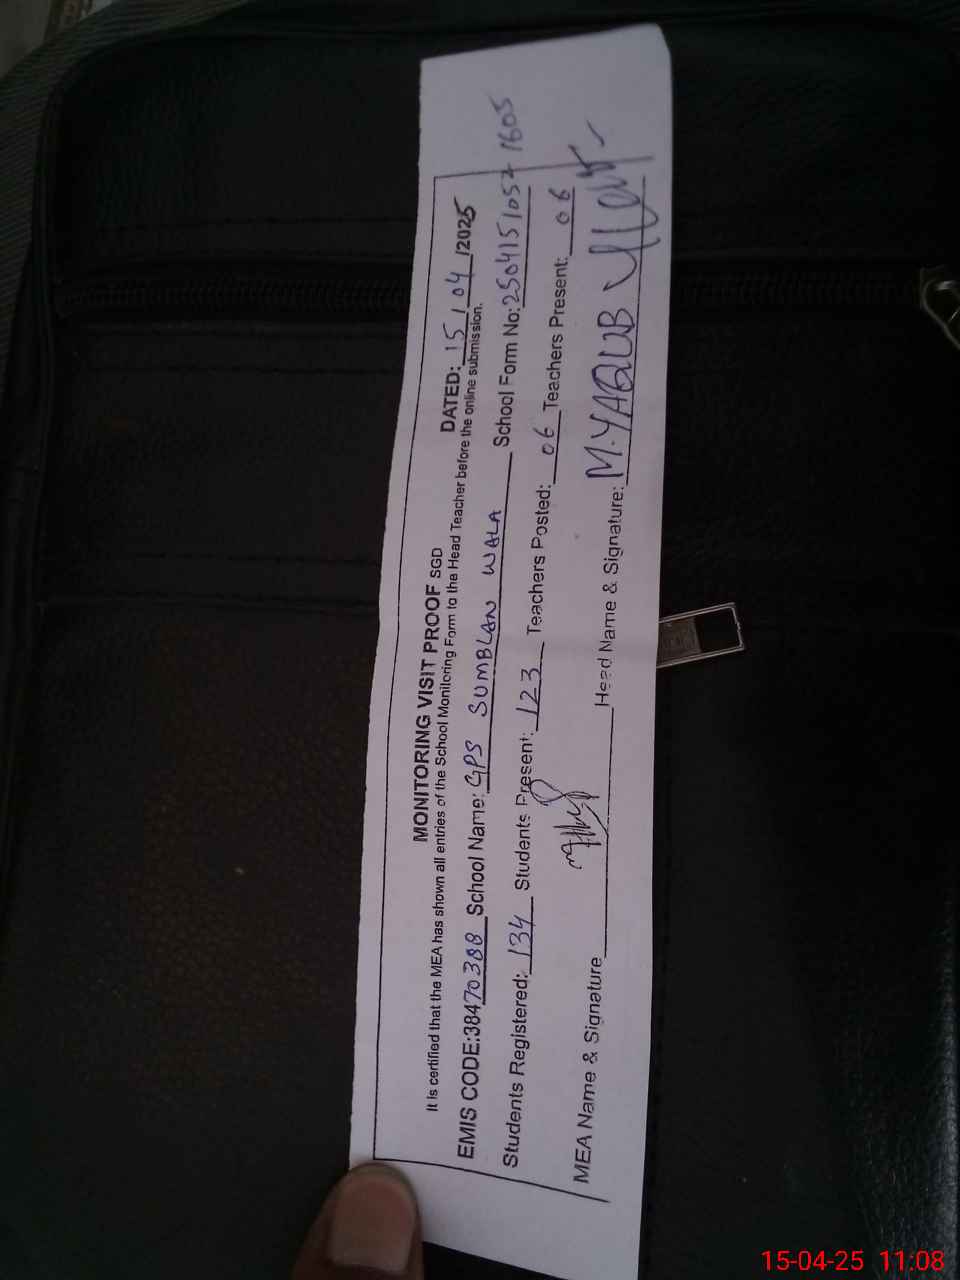 MONITORING VISIT PROOF SGD DATED: 15/04/2025
It is certified that the MEA has shown all entries of the School Monitoring Form to the Head Teacher before the online submission.
EMIS CODE:38470388 School Name: GPS SUMBLAN WALA School Form No:2504151052 1605
Students Registered: 134 Students Present: 123 Teachers Posted: 06 Teachers Present: 06
MEA Name & Signature Head Name & Signature: M.YAQUB
15-04-25 11:08